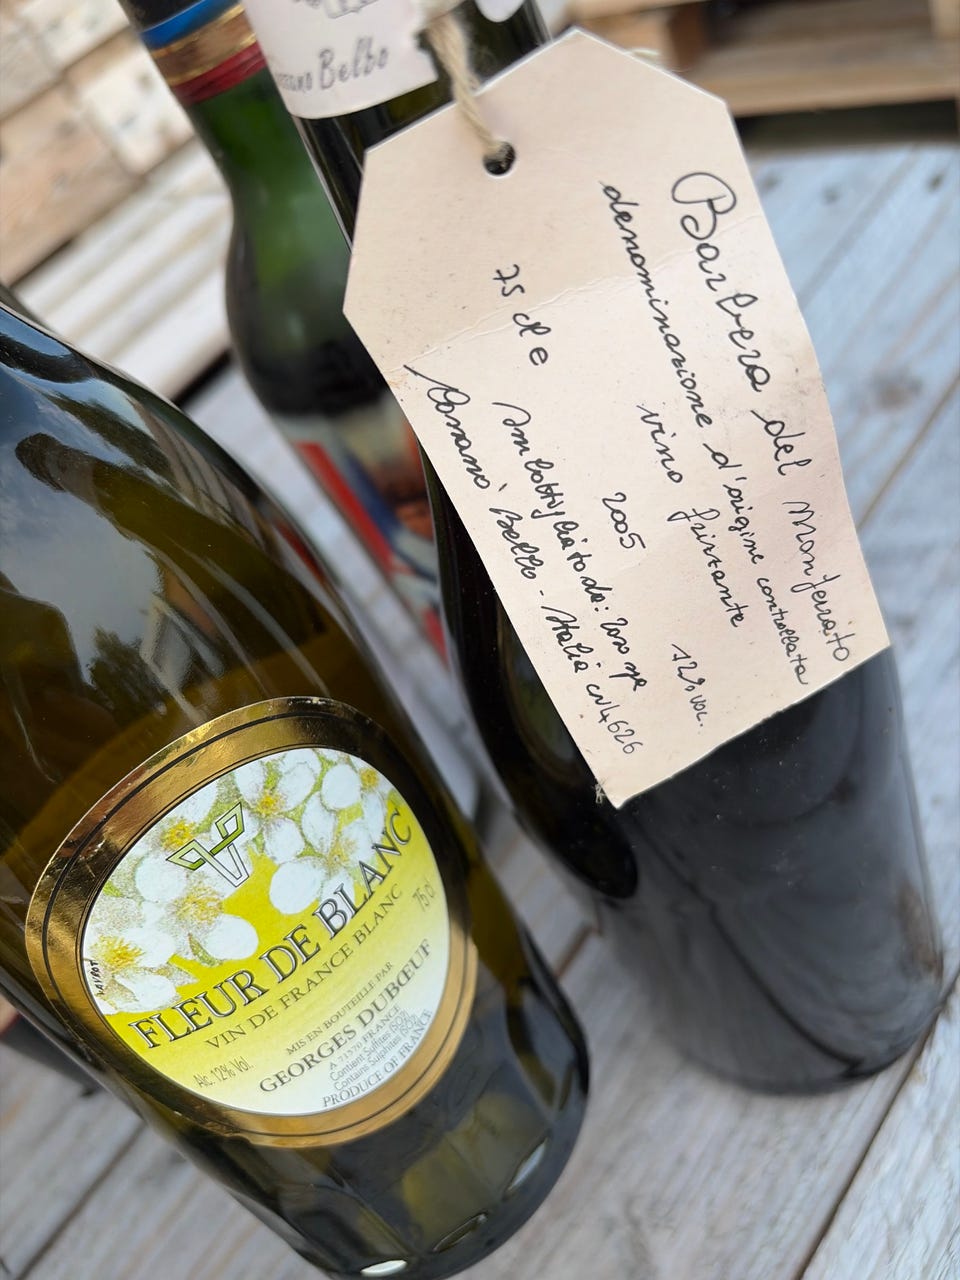 Belbo
Barbera del Monferrato
denominazione d'origine controllata
vino frizzante
12% VOL.
2005
75 cl e
Imbottigliato da:
Cossano Belbo - Italia CN4626
FLEUR DE BLANC
VIN DE FRANCE BLANC
75 cl
MIS EN BOUTEILLE PAR
GEORGES DUBŒUF
A 71570 FRANCE
Contient Sulfites (SO2)
Contains Sulphites (SO2)
PRODUCE OF FRANCE
Alc. 12% Vol.